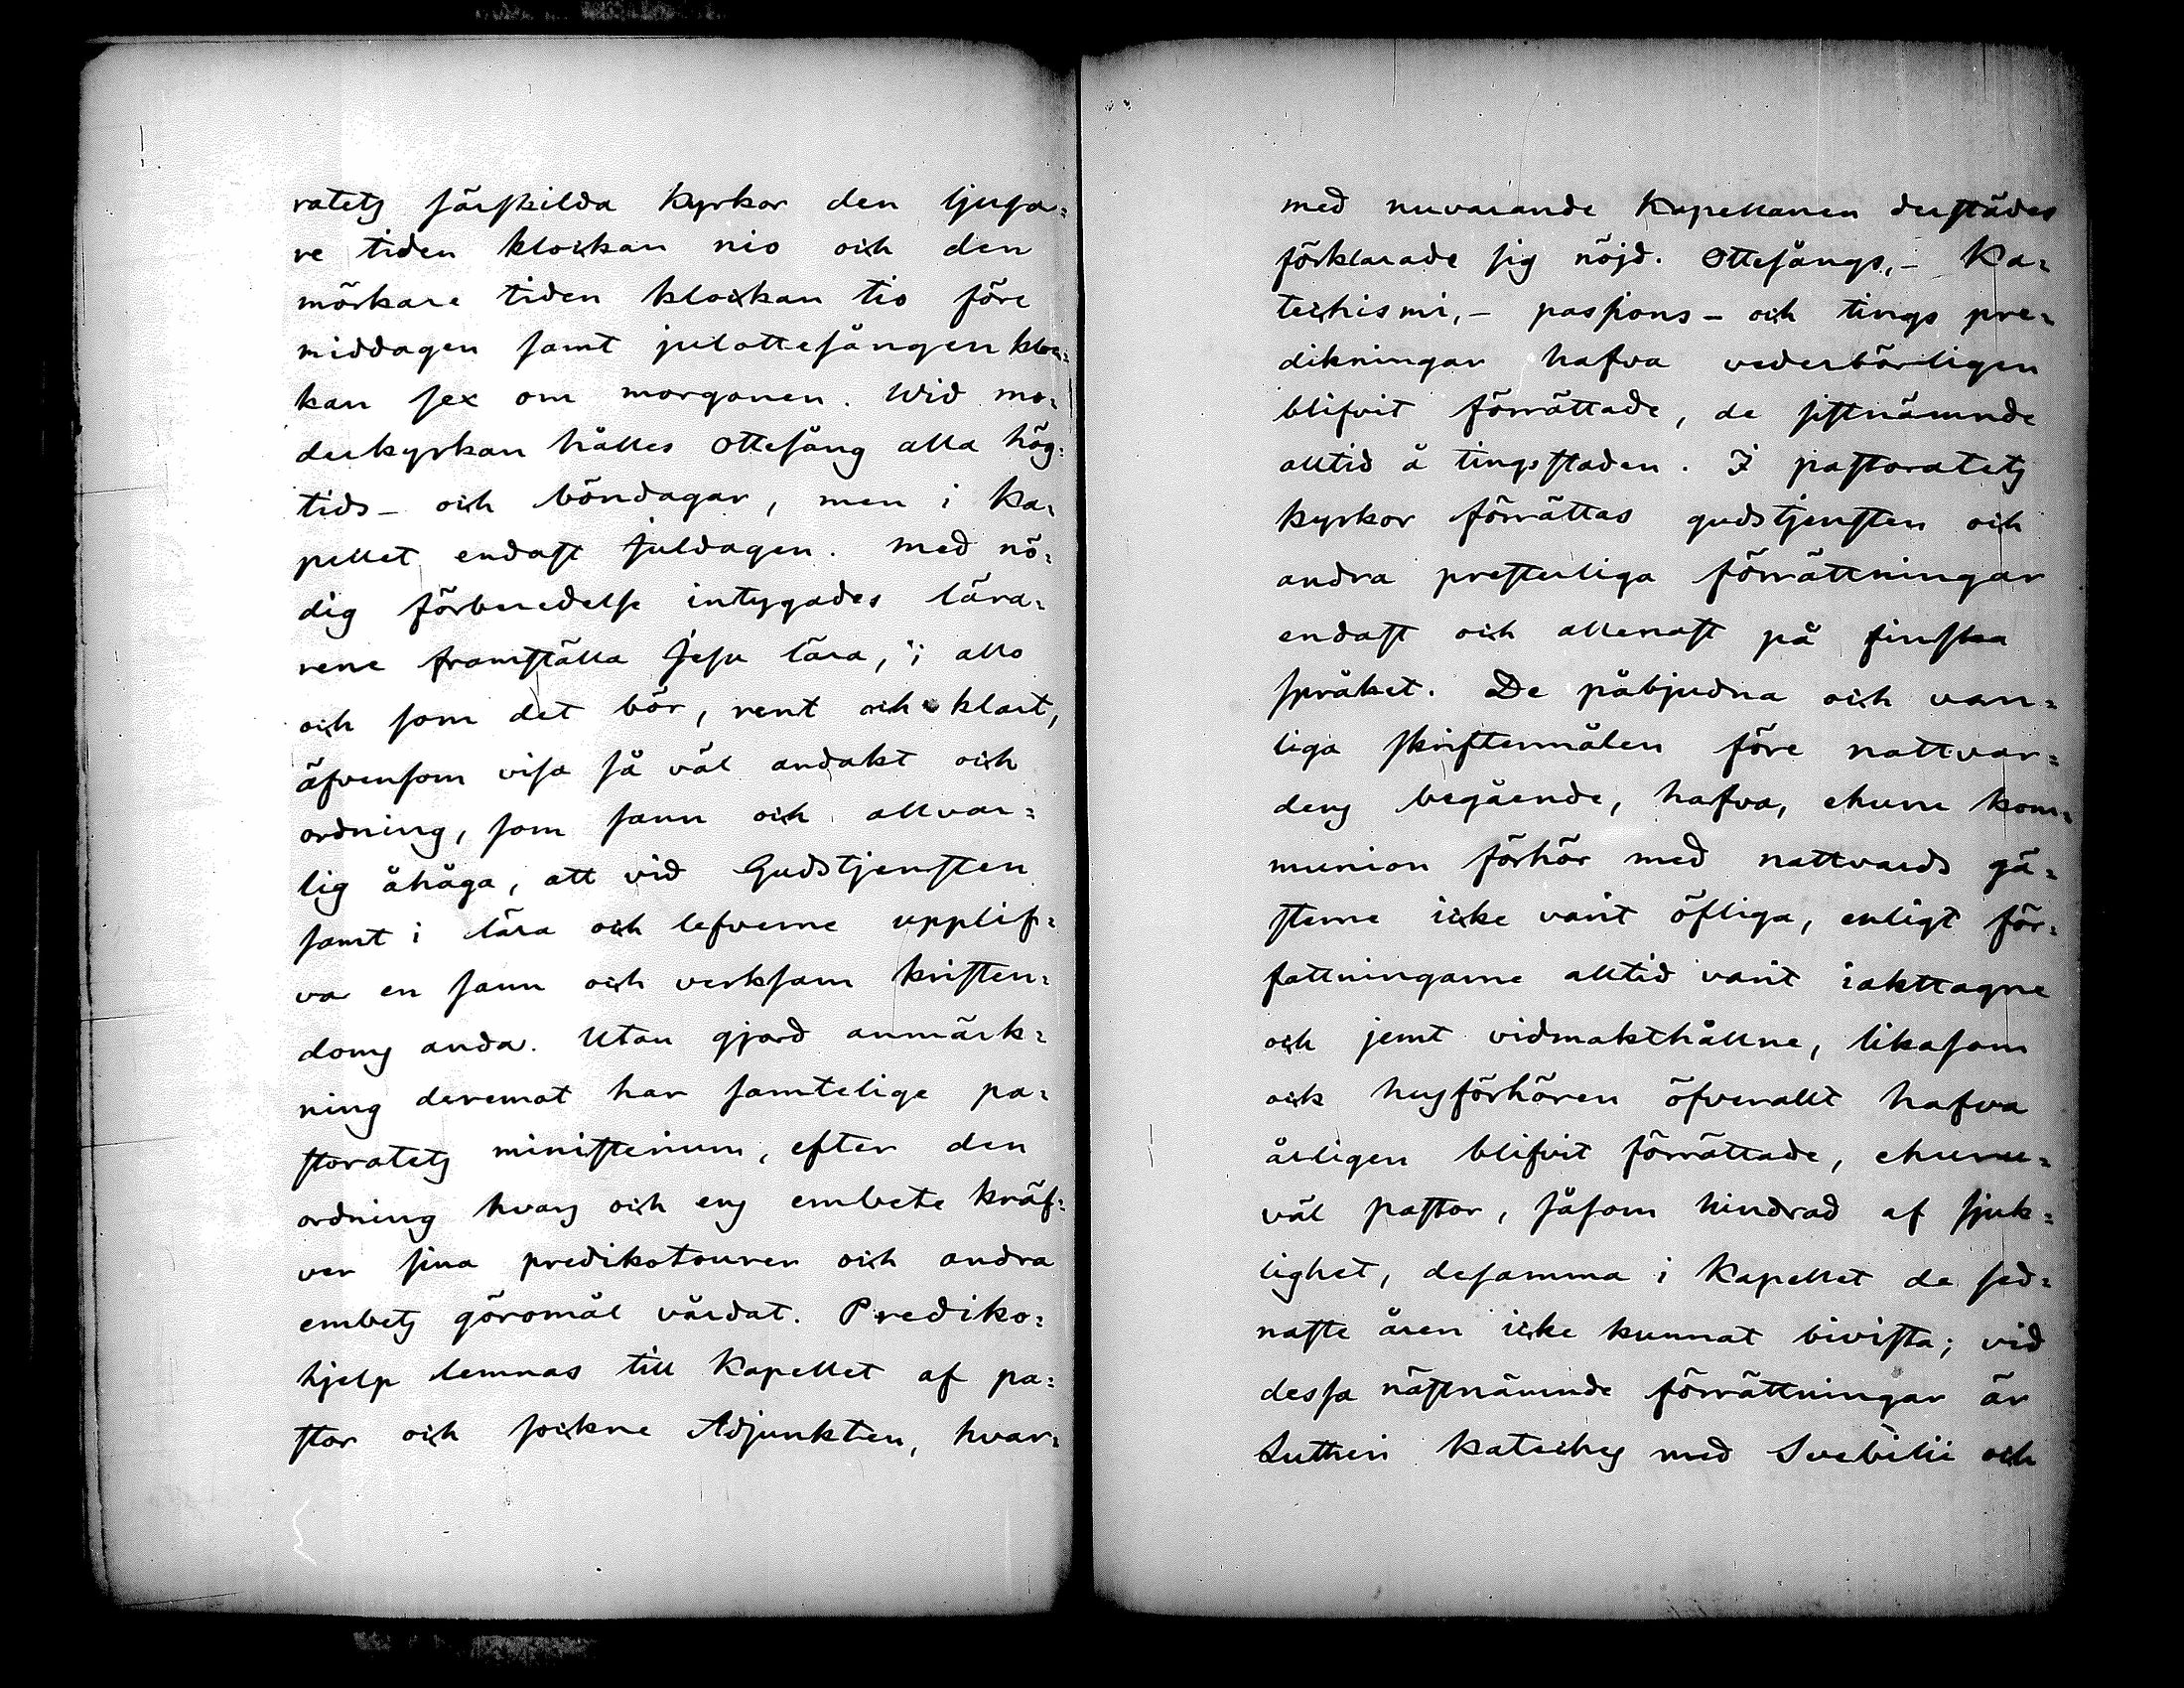 ratets särskilda kyrkor den ljusa=
re tiden klockan nio och den
mörkare tiden klockan tio före
middagen samt julottesången kloc=
kan sex om morgonen. Wid mo=
derkyrkan hålles Ottesång alla hög=
tids- och böndagar, men i Ka=
pellet endast Juldagen. Med nö=
dig förberedelse intygades lära=
rene framställa Jesu lära, i allo
och som det bör, rent och klart,
äfvensom visa så väl andakt och
ordning, som sann och allvar=
lig åhåga, att vid Gudstjensten
samt i lära och lefverne upplif=
va en sann och verksam kristen=
doms anda. Utan gjord anmärk=
ning deremot har samtelige pa=
storatets ministerium, efter den
ordning hvars och ens embete kräf=
ver sina predikotourer och andra
embets göromål vårdat. Prediko=
hjelp lemnas till Kapellet af pa=
stor och sockne Adjunkten, hvar=
med nuvarande Kapellanen derstädes
förklarade sig nöjd. Ottesångs,- Ka=
techismi,- passions- och tings pre=
dikningar hafva vederbörligen
blifvit förrättade, de sistnämnde
alltid å tingsstaden. I pastoratets
kyrkor förrättas gudstjensten och
andra presterliga förrättningar
endast och allenast på finska
språket. De påbjudna och van=
liga skriftermålen före nattvar=
dens begående, hafva, ehuru kom=
munion förhör med nattvards gä=
sterne icke varit öfliga, enligt för=
fattningarne alltid varit iakttagne
och jemt vidmakthållne, likasom
ock husförhören öfverallt hafva
årligen blifvit förrättade, ehuru=
väl pastor, såsom hindrad af sjuk=
lighet, desamma i Kapellet de sed=
naste åren icke kunnat bivista; vid
dessa nästnämnde förrättningar är
Lutheri Kateches med Svebilii och